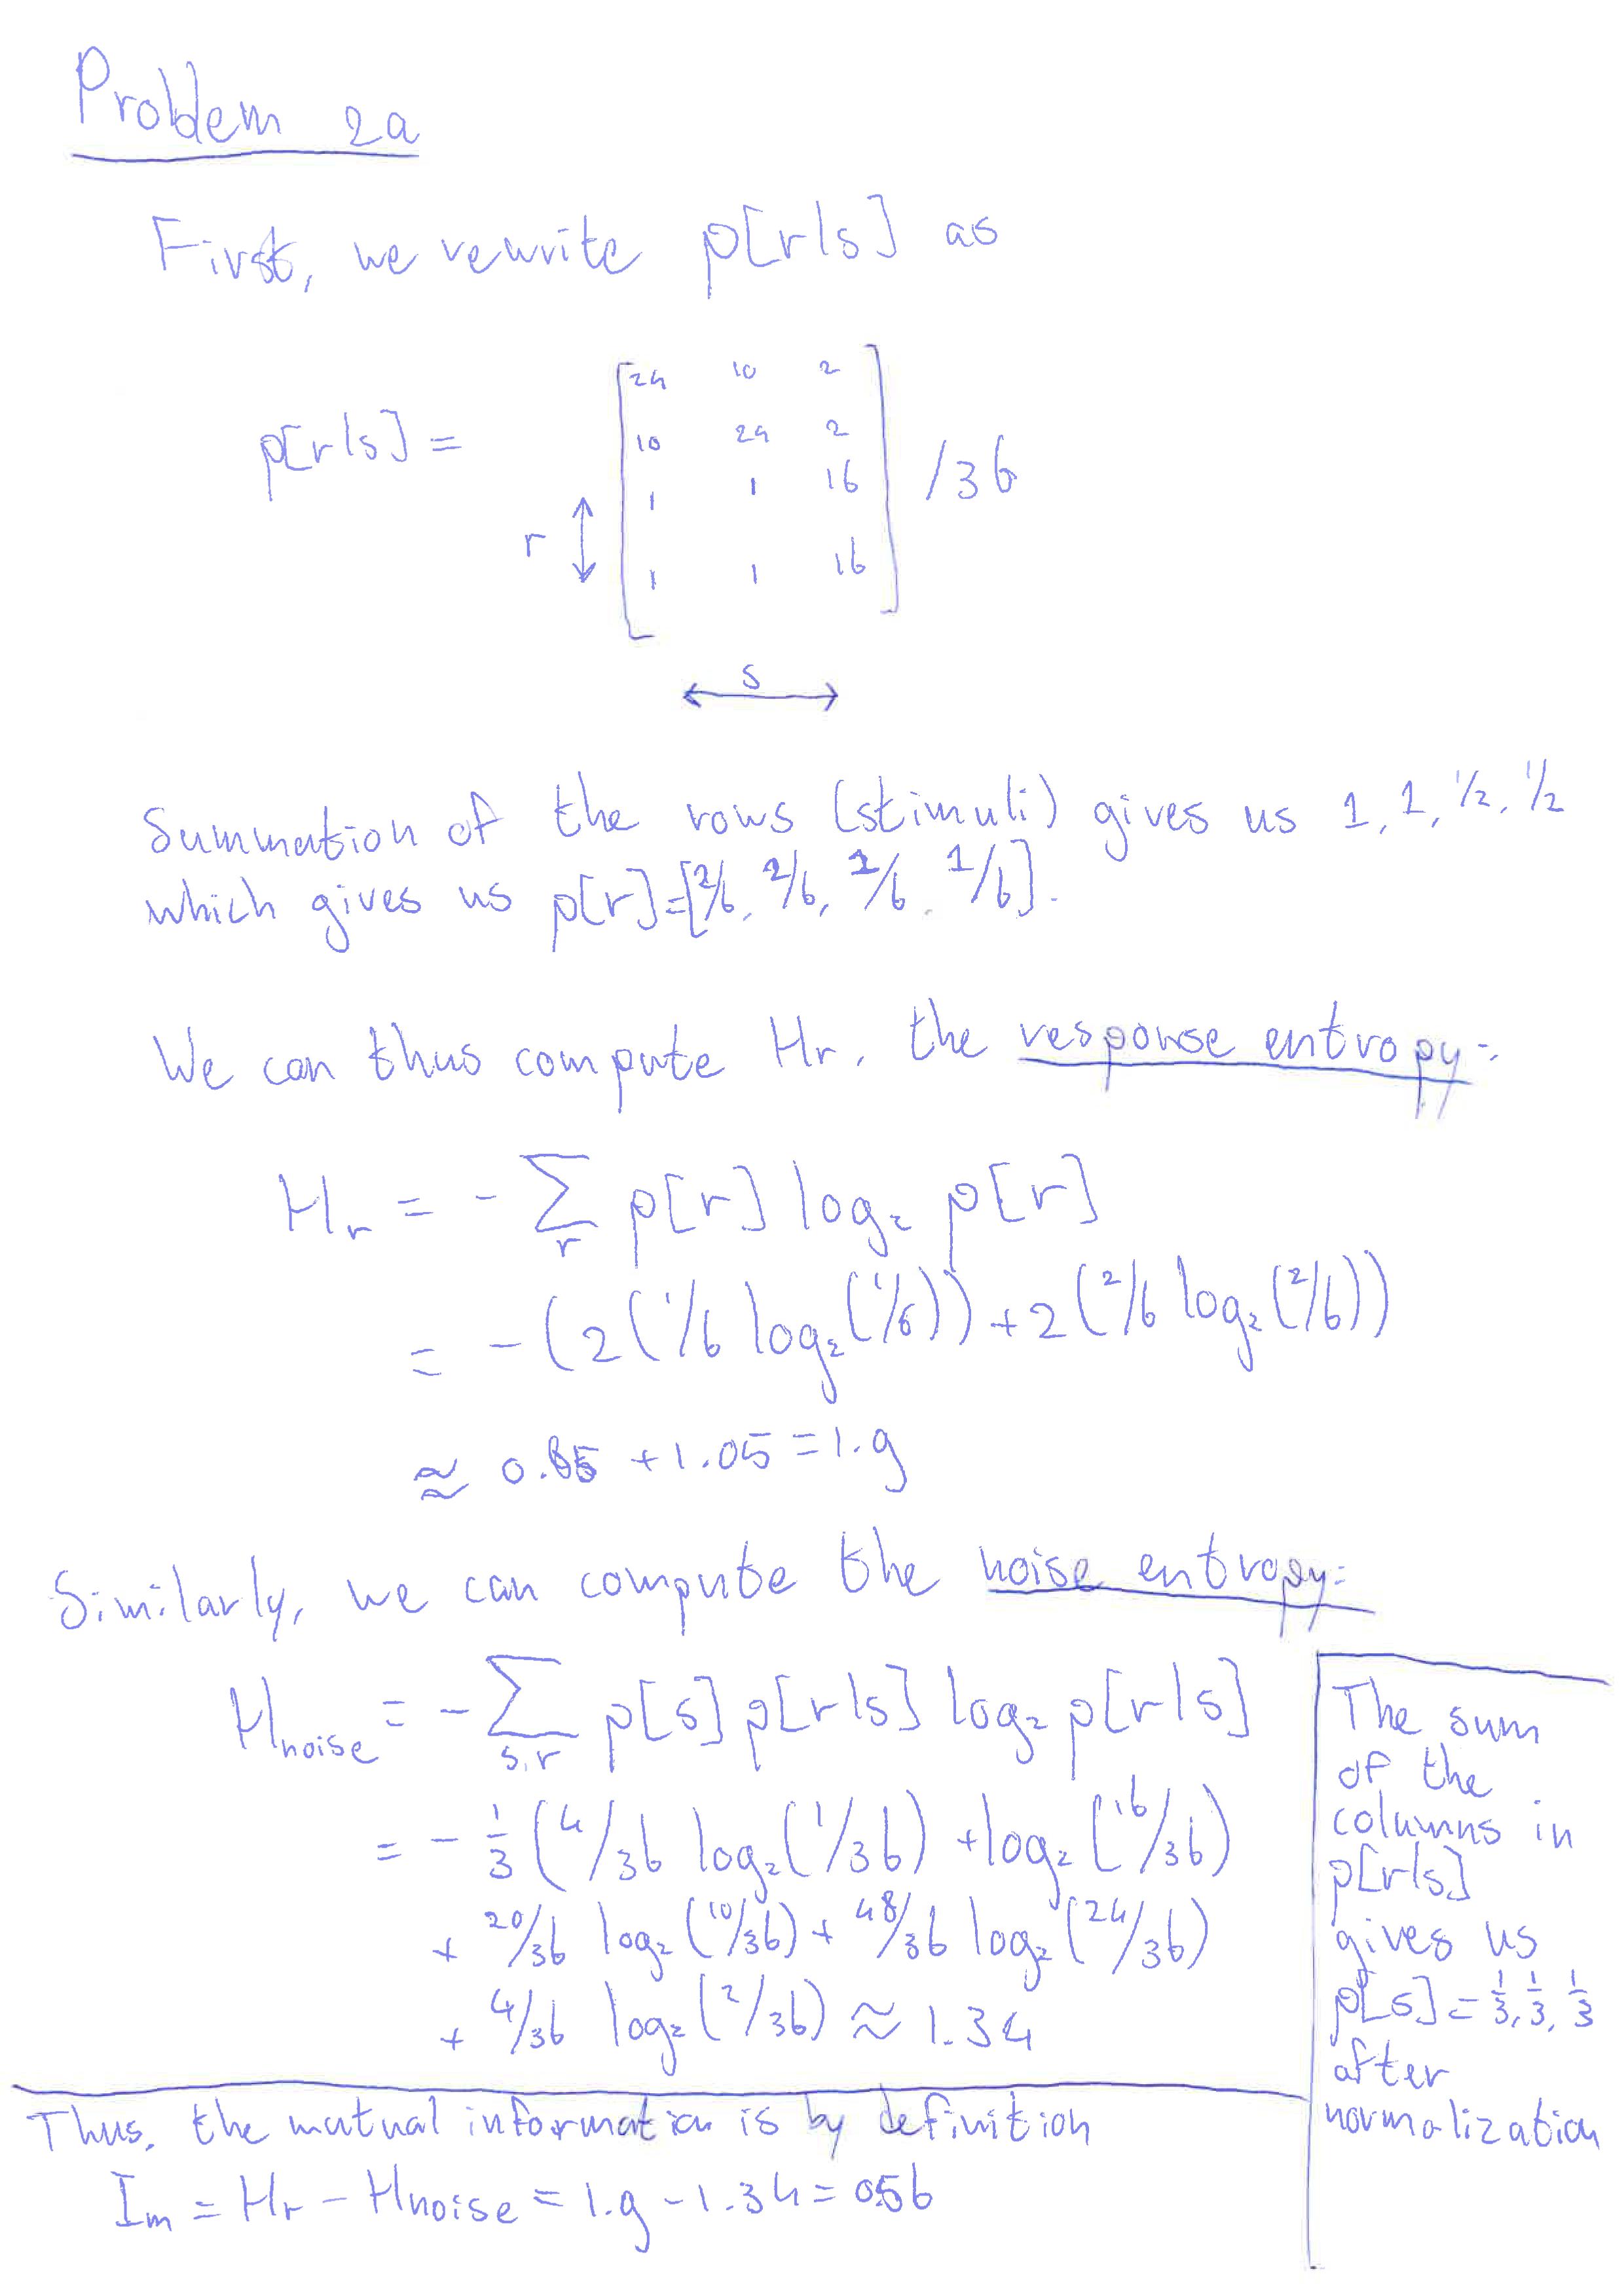 Problem 2a
First, we rewrite p[r|s] as
24 10 2
p[r|s] = 10 24 2 /36
1 1 16
r
1 1 16
s
Summation of the rows (stimuli) gives us 1, 1, 1/2, 1/2
which gives us p[r]=[2/6, 2/6, 1/6, 1/6].
We can thus compute Hr, the response entropy:
Hr = - ∑r p[r] log2 p[r]
= -(2(1/6 log2(1/6)) + 2(2/6 log2(2/6))
≈ 0.85 + 1.05 = 1.9
Similarly, we can compute the noise entropy:
Hnoise = - ∑s,r p[s] p[r|s] log2 p[r|s]
= - 1/3 (4/36 log2(1/36) + log2(16/36)
+ 20/36 log2(10/36) + 48/36 log2(24/36)
+ 4/36 log2(2/36) ≈ 1.34
The sum
of the
columns in
p[r|s]
gives us
p[s] = 1/3, 1/3, 1/3
after
normalization
Thus, the mutual information is by definition
Im = Hr - Hnoise = 1.9 - 1.34 = 0.56